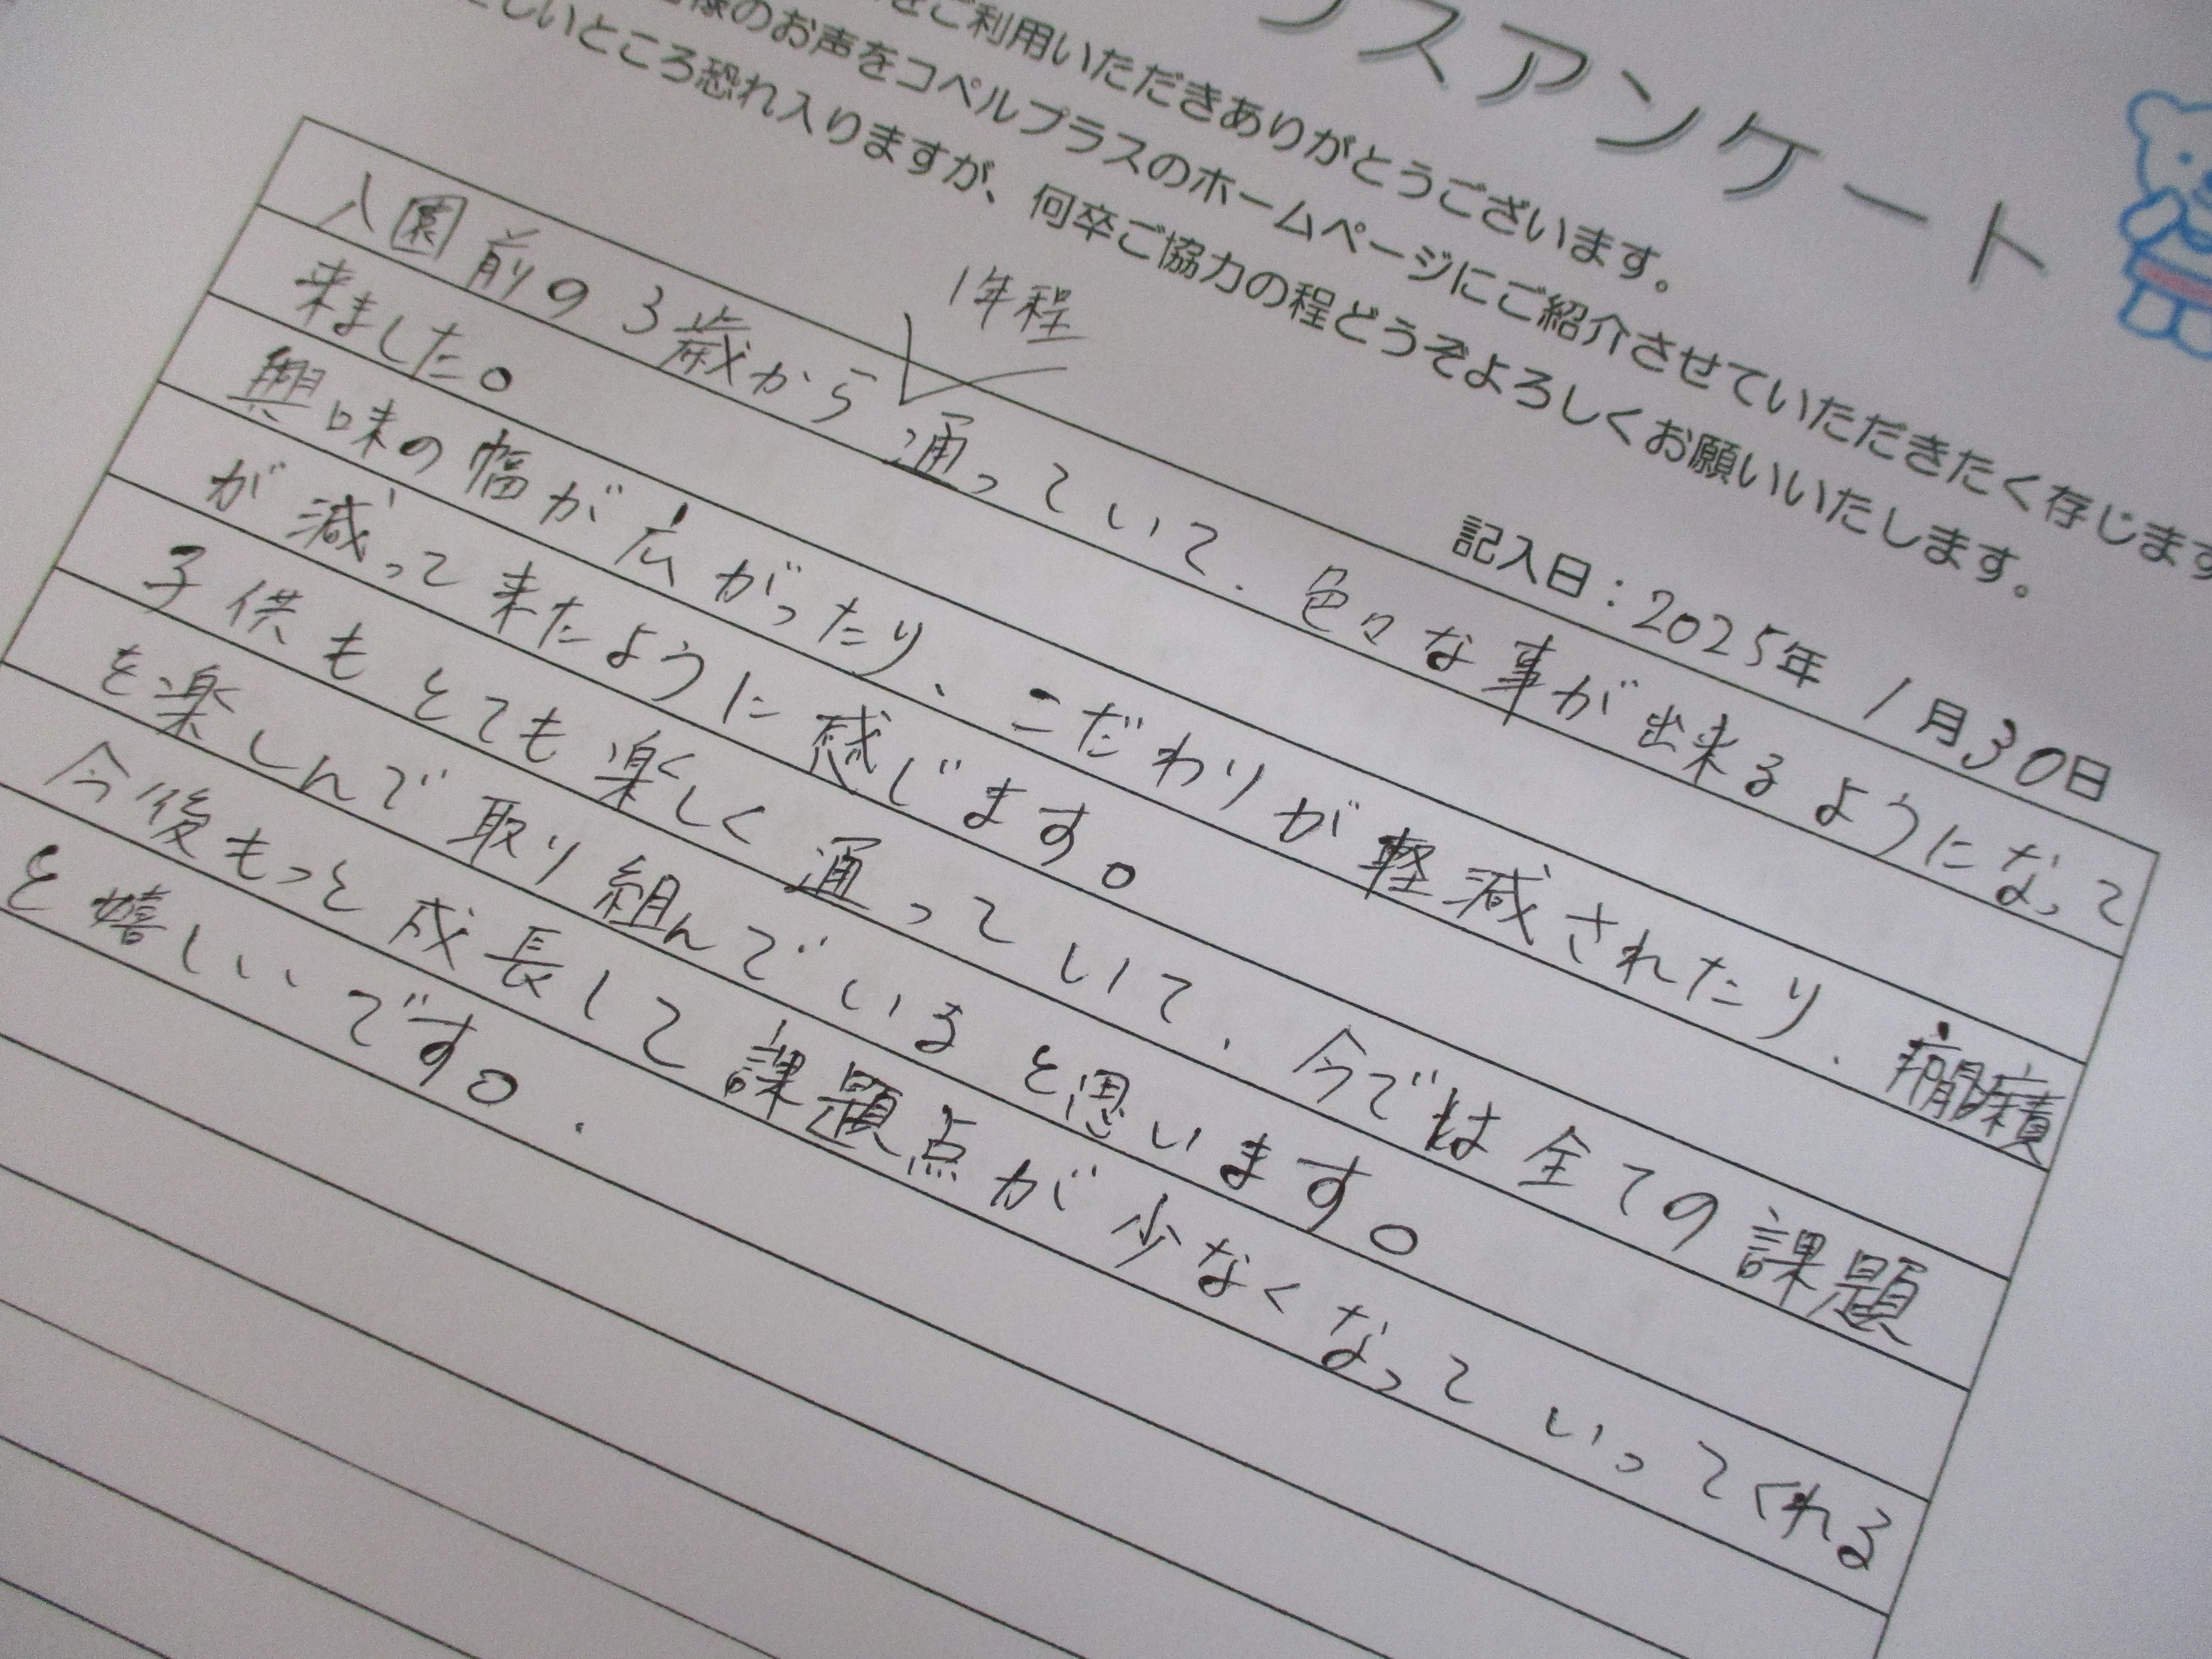 ラスアンケート
をご利用いただきありがとうございます。
様のお声をコペルプラスのホームページにご紹介させていただきたく存じます
しいところ恐れ入りますが、何卒ご協力の程どうぞよろしくお願いいたします。
記入日：2025年 1月30日
1年程
入園前の3歳から通っていて、色々な事が出来るようになって
来ました。
興味の幅が広がったり、こだわりが軽減されたり、癇癪
が減って来たように感じます。
子供もとても楽しく通っていて、今では全ての課題
を楽しんで取り組んでいると思います。
今後もっと成長して課題点が少なくなっていってくれる
と嬉しいです。